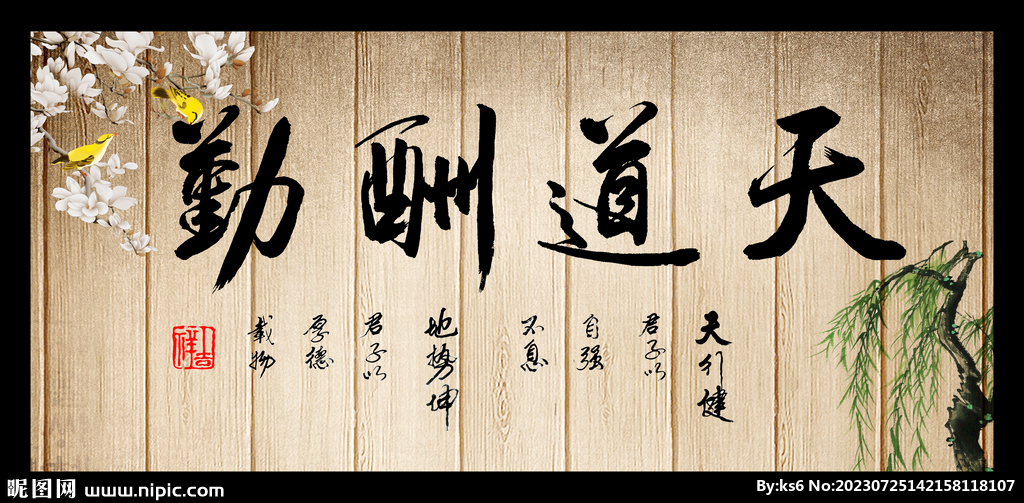 天道酬勤
天行健
君子以
自强
不息
地势坤
君子以
厚德
载物
吉祥
昵图网 www.nipic.com
By:ks6 No:20230725142158118107